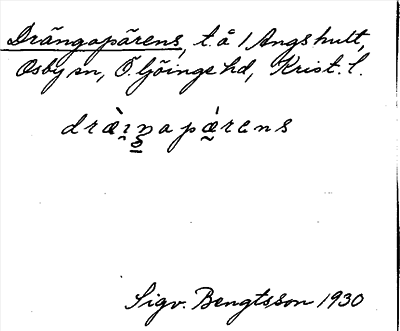 Drängapärens, t. å 1 Angshult,
Osby sn, Ö. Göinge hd, Krist. l.
dræ̀ı̯ŋapæ̀rens
Sigv. Bengtsson 1930